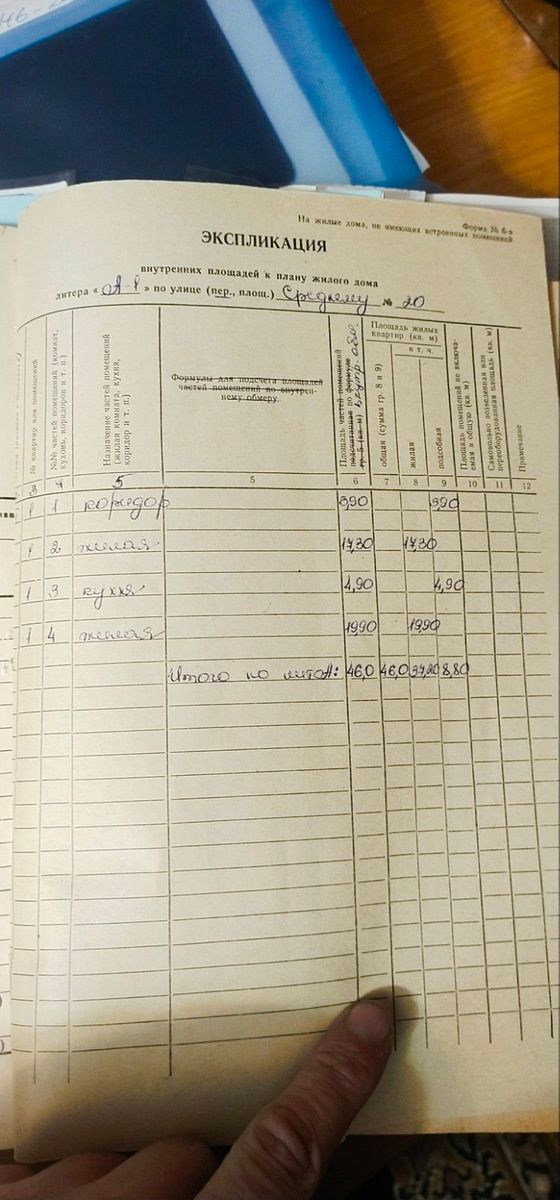 На жилые дома, не имеющих встроенных помещений
Форма № 6-а
ЭКСПЛИКАЦИЯ
внутренних площадей к плану жилого дома
литера « А-1 » по улице (пер., площ.) Среднему № 20
№ квартир или помещений
№№ частей помещений (комнат, кухонь, коридоров и т. п.)
Назначение частей помещений (жилая комната, кухня, коридор и т. п.)
Формулы для подсчета площадей частей помещений по внутреннему обмеру
Площадь частей помещений подсчитанная по формуле гр. 5 (кв. м) внутр. обм.
Площадь жилых квартир (кв. м)
общая (сумма гр. 8 и 9)
в т. ч.
жилая
подсобная
Площадь помещений не включаемая в общую (кв. м)
Самовольно возведенная или переоборудованная площадь (кв. м)
Примечание
3 4 5 5 6 7 8 9 10 11 12
1 1 коридор 3,90 3,90
1 2 жилая 17,30 17,30
1 3 кухня 4,90 4,90
1 4 жилая 19,90 19,90
Итого по лит А: 46,0 46,0 37,20 8,80